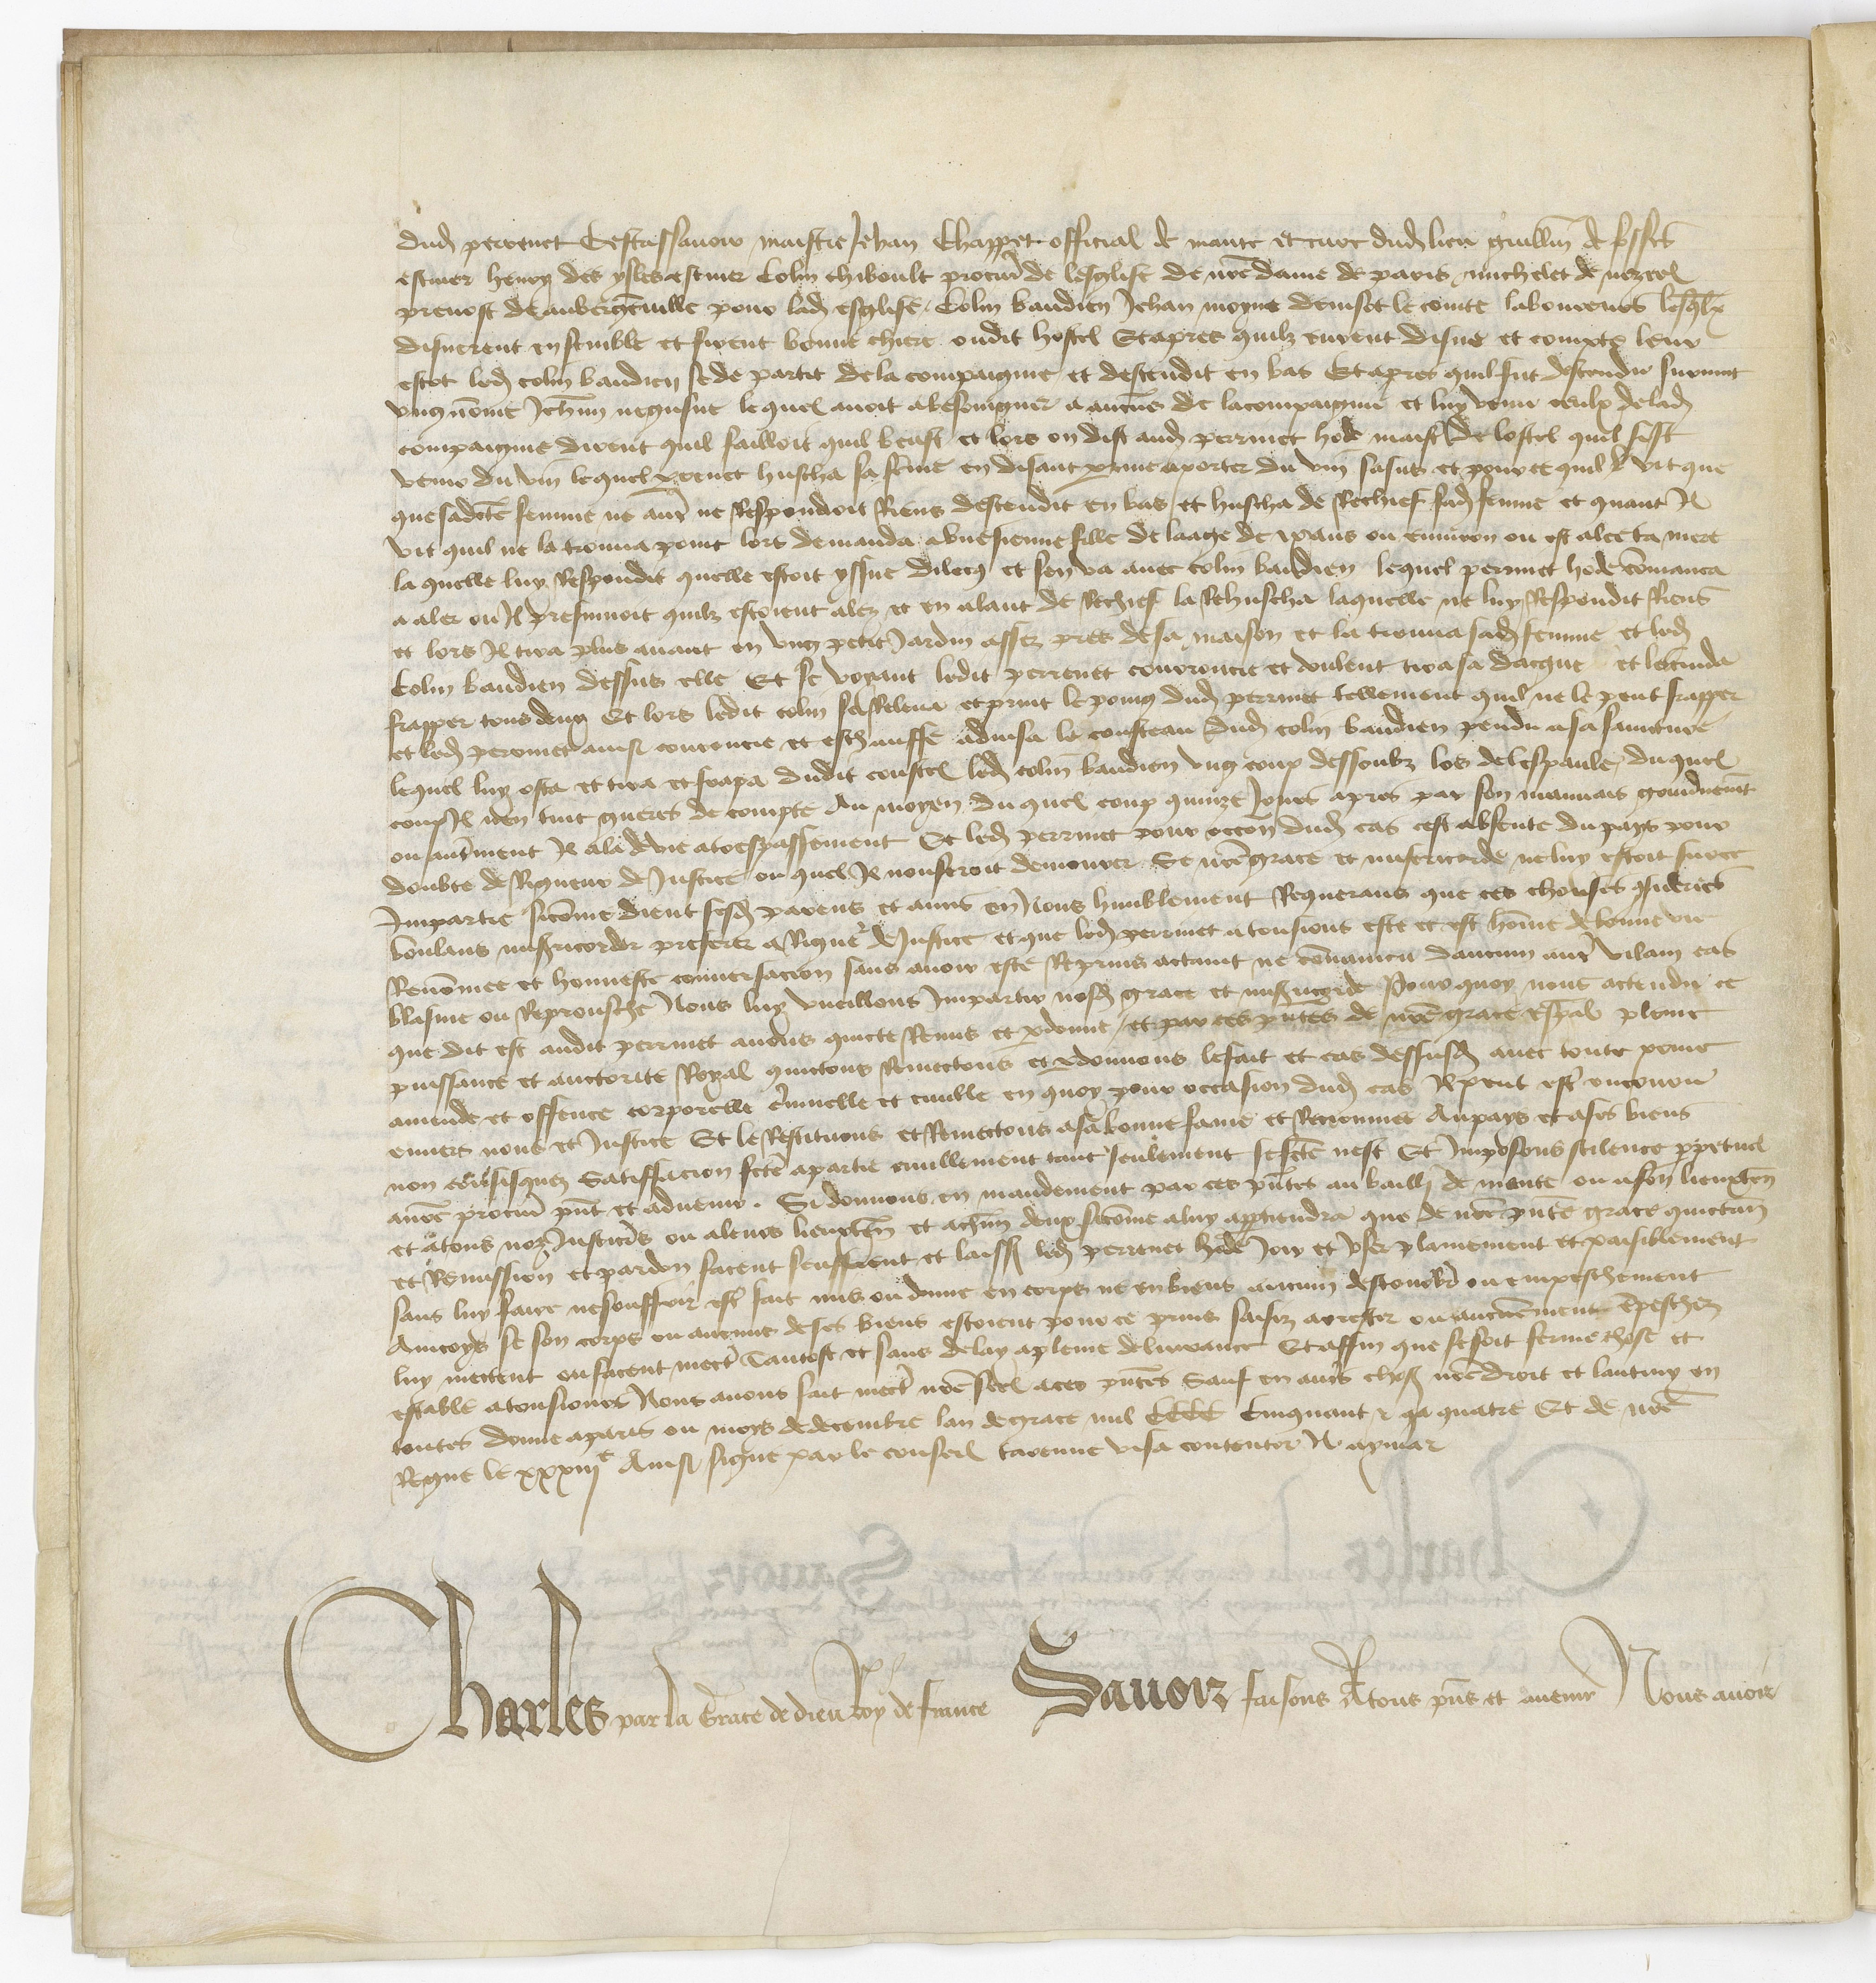 dud perrenet C maistre Jehan Chappet official de mante et cure dud lieu guillm de
escuier henry des ysles escuier Colin thiboult procur de leglise de nre dame de paris michelet de
prevost de aubergenville pour lad esglise Colin baudien Jehan moyne denisot le conte laboureurs lesqlx
disnerent ensemble et firent bonne chiere oudit hostel Et apres quilz eurent disne et compte leur
escot led colin baudien se departit de la compaignie et descendit en bas Et apres quil fut descendu survint
ung nomme Jehan lequel avoit a besoingner a aucuns de la compaignie et luy venu ceulx de lad
compaignie dirent quil failloit quil beust et lors on dist aud perrinet hode maistre de lostel quil feist
venir du vin lequel perrenet huscha sa feme en disant aporter du vin sasus et pour ce quil vit que
que sadicte femme ne autre ne respondoit riens descendit en bas et huscha de rechief sad femme et quant il
vit quil ne la trouva point lors demanda a une sienne fille de laage de ix ans ou environ ou est alee ta mere
la quelle luy respondit quelle estoit yssue dilecq et sen va avec colin baudien lequel perrinet hode comanca
a aler ou il presumoit quilz estoient alez et en alant de rechief la rehuscha laquelle ne luy respondit riens
et lors il tira plus avant en ung petit jardin assez pres de sa maison et la trouva sad femme et led
Colin baudien dessus elle Et se voyant ledit perrenet courroucie et dulent tira sa dague et les cuida
frapper tous deux Et lors ledit colin se releva et print le poing dud perrinet tellement quil ne le peut frapper
et led perrinet ainsi courroucie et eschauffe advisa le cousteau dud colin baudien pendu a sa sainture
lequel luy osta et tira et frapa dudit coustel led colin baudien ung coup dessoubz los de lespaule duquel
coup il nen tint gueres de compte Au moyen du quel coup quinze jours apres par son mauvais gouvernemt
ou autrement il ala de vie a trespassement Et led perrinet pour occon dud cas cest absente du pays pour
doubte de rigueur de justice ou quel il noseroit demourer Se nre grace et misericorde ne luy estoit sur ce
Impartie sicomme dient sesd parens et amis en nous humblement requerans que ces choses considerees
voulans misericorde preferer a rigueur de justice et que led perrinet a tousjours este et est homme de bonne vie
renommee et honneste conversacion sans avoir este reprins actaint ne convaincu daucun autre vilain cas
blasme ou reprouche Nous luy vueillons Impartir nosd grace et misericorde Pour quoy nous actendu ce
que dit est audit perrinet avons quicte remis et pardonne et par ces pntes de nre grace espal pleine
puissance et auctorite royal quictons remectons et pardonnons le fait et cas dessusd avec toute peine
amende et offence corporelle criminelle et civille en quoy pour occasion dud cas il peut estre encouru
envers nous et justice Et le restituons et remectons a sa bonne fame et renommee au pays et a ses biens
non confisquez Satisffacion fcte a partie civillement tant seulement se fcte nest Et Imposons scilence ppetuel
a nre procur pnt et advenir. Si donnons en mandement par ces pntes au bailli de mante ou a son lieuten
et a tous noz justiciers ou a leurs lieuten et a chun deulx sicomme a luy apptiendra que de nre pnte grace quictan
et remission et pardon facent seuffrent et laissent led perrenet hode joir et user plainement et paisiblement
sans luy faire ne souffrir estre fait mis ou donne en corps ne en biens aucun destourbier ou empeschement
Aincoys se son corps ou aucuns de ses biens estoient pour ce prins saisiz arrestez ou aucunement empeschez
luy mectent ou facent mectre tantost et sans delay a pleine delivrance Et affin que ce soit ferme chose et
estable a tousjours Nous avons fait mectre nre scel a ces pntes Sauf en autres choses nre droit et lautruy en
toutes donne a paris ou moys de decembre lan de grace mil CCCC Cinquant et quatre Et de nre
Regne le xxxiije Ainsi signe par le conseil tarenne visa contentor N aymar
Charles par la grace de dieu Roy de france Savoir faisons A tous pns et avenir Nous avoir